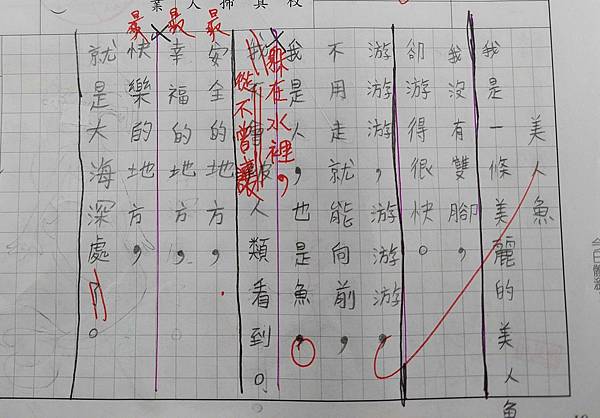 美人魚
我是一條美麗的美人魚
我沒有雙腳，
卻游得很快。
游游游，游游游，
不用走就能向前，
我是人，也是魚，
躲在水裡，
我不會被人類看到。
從不曾讓
最
安全的地方，
最
幸福的地方，
最
快樂的地方，
就是大海深處。